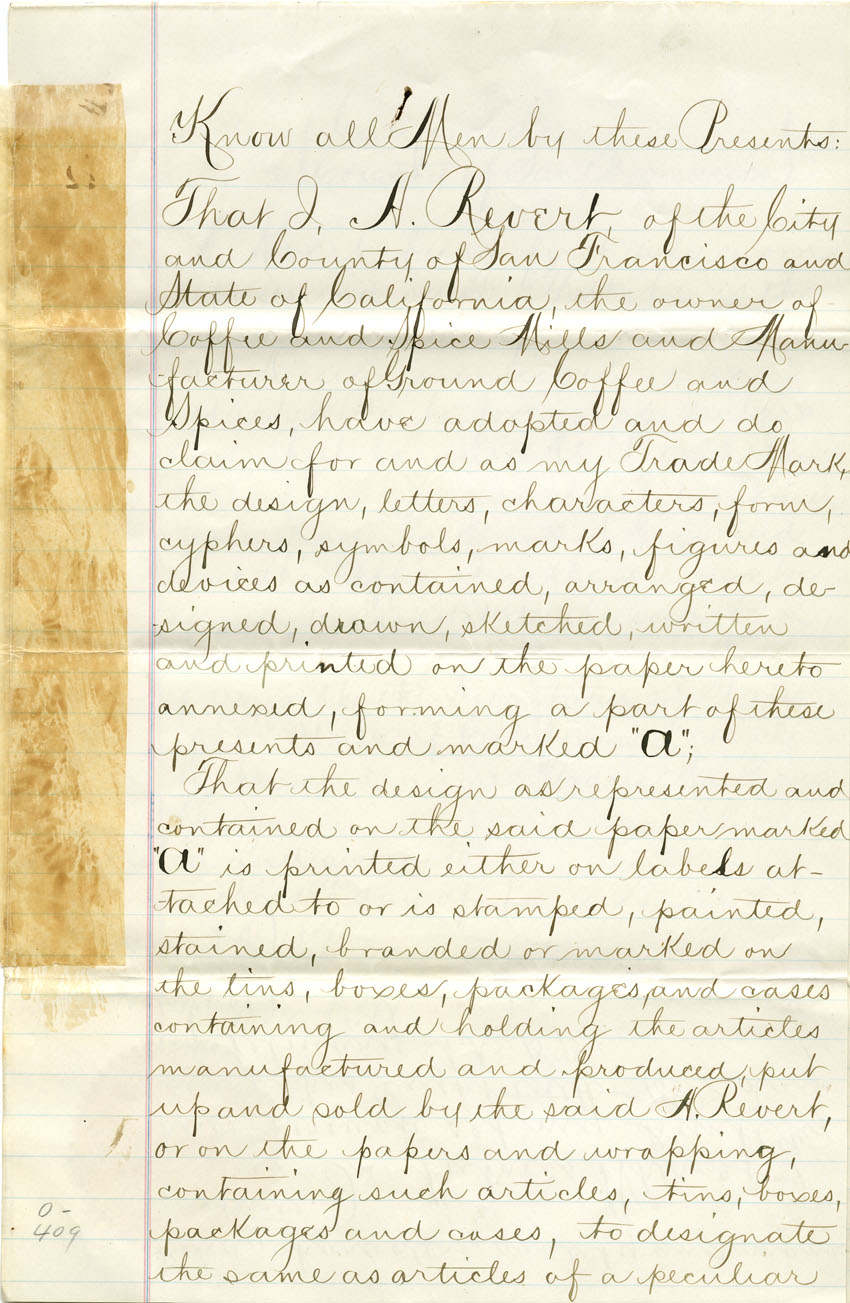 Know all Men by these Presents:
That I, A. Revert, of the City
and County of San Francisco and
State of California, the owner of
Coffee and Spice Mills and Manu-
-facturer of Ground Coffee and
Spices, have adopted and do
claim for and as my Trade Mark,
the design, letters, characters, form,
cyphers, symbols, marks, figures and
devices as contained, arranged, de-
-signed, drawn, sketched, written
and printed on the paper hereto
annexed, forming a part of these
presents and marked "a";
That the design as represented and
contained on the said paper marked
"a" is printed either on labels at-
-tached to or is stamped, painted,
stained, branded or marked on
the tins, boxes, packages, and cases
containing and holding the articles
manufactured and produced, put
up and sold by the said A. Revert,
or on the papers and wrapping,
containing such articles, tins, boxes,
packages and cases, to designate
the same as articles of a peculiar
0-
409